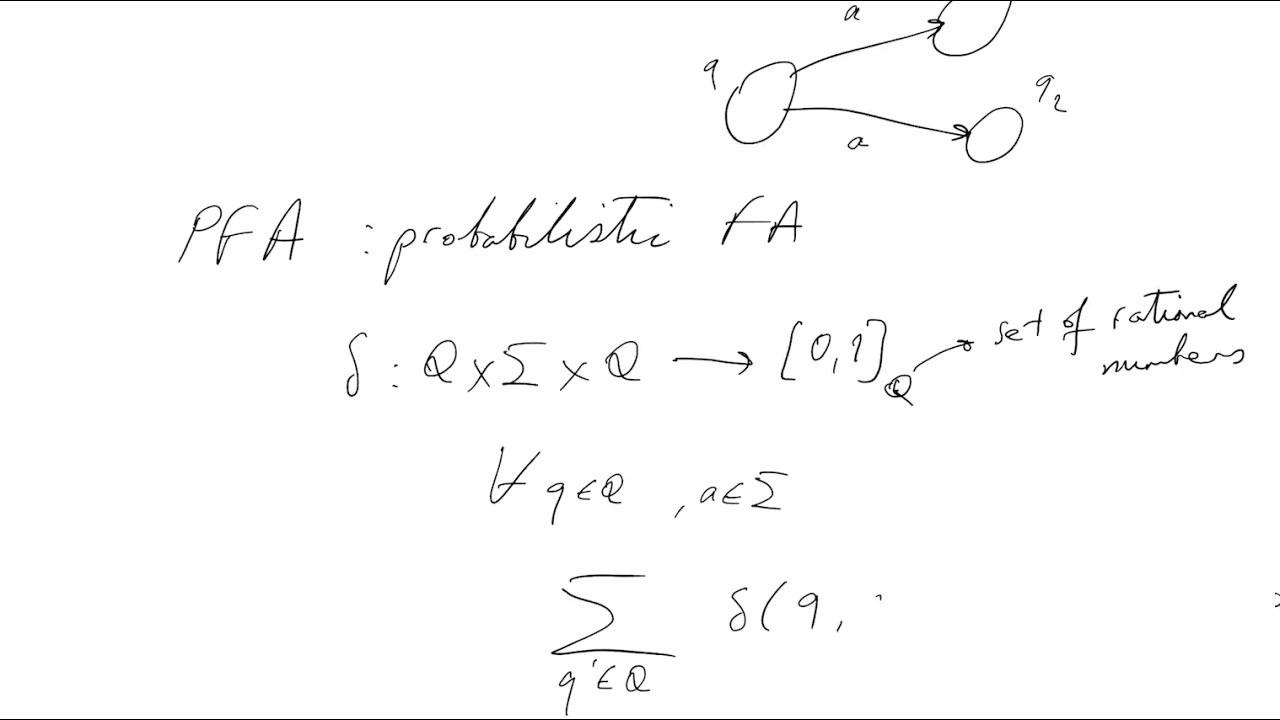 a
q
q₂
a
PFA : probabilistic FA
δ : Q × Σ × Q ⟶ [0,1]_Q → set of rational numbers
∀ q ∈ Q , a ∈ Σ
∑_{q' ∈ Q} δ( q ,